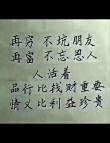 再穷 不坑朋友
再富 不忘恩人
人活着
品行比找财重要
情义比利益珍贵